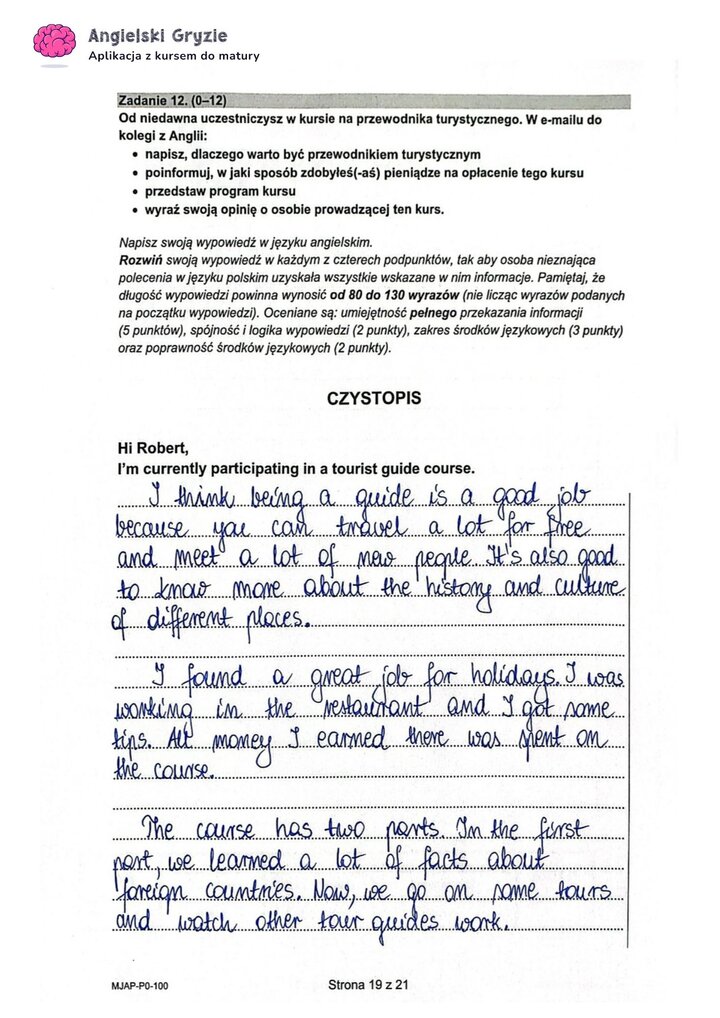 Angielski Gryzie
Aplikacja z kursem do matury
Zadanie 12. (0–12)
Od niedawna uczestniczysz w kursie na przewodnika turystycznego. W e-mailu do
kolegi z Anglii:
• napisz, dlaczego warto być przewodnikiem turystycznym
• poinformuj, w jaki sposób zdobyłeś(-aś) pieniądze na opłacenie tego kursu
• przedstaw program kursu
• wyraź swoją opinię o osobie prowadzącej ten kurs.
Napisz swoją wypowiedź w języku angielskim.
Rozwiń swoją wypowiedź w każdym z czterech podpunktów, tak aby osoba nieznająca
polecenia w języku polskim uzyskała wszystkie wskazane w nim informacje. Pamiętaj, że
długość wypowiedzi powinna wynosić od 80 do 130 wyrazów (nie licząc wyrazów podanych
na początku wypowiedzi). Oceniane są: umiejętność pełnego przekazania informacji
(5 punktów), spójność i logika wypowiedzi (2 punkty), zakres środków językowych (3 punkty)
oraz poprawność środków językowych (2 punkty).
CZYSTOPIS
Hi Robert,
I'm currently participating in a tourist guide course.
I think being a guide is a good job
because you can travel a lot for free
and meet a lot of new people. It's also good
to know more about the history and culture
of different places.
I found a great job for holidays. I was
working in the restaurant and I got some
tips. All money I earned there was spent on
the course.
The course has two parts. In the first
part, we learned a lot of facts about
foreign countries. Now, we go on some tours
and watch other tour guides work.
MJAP-P0-100
Strona 19 z 21